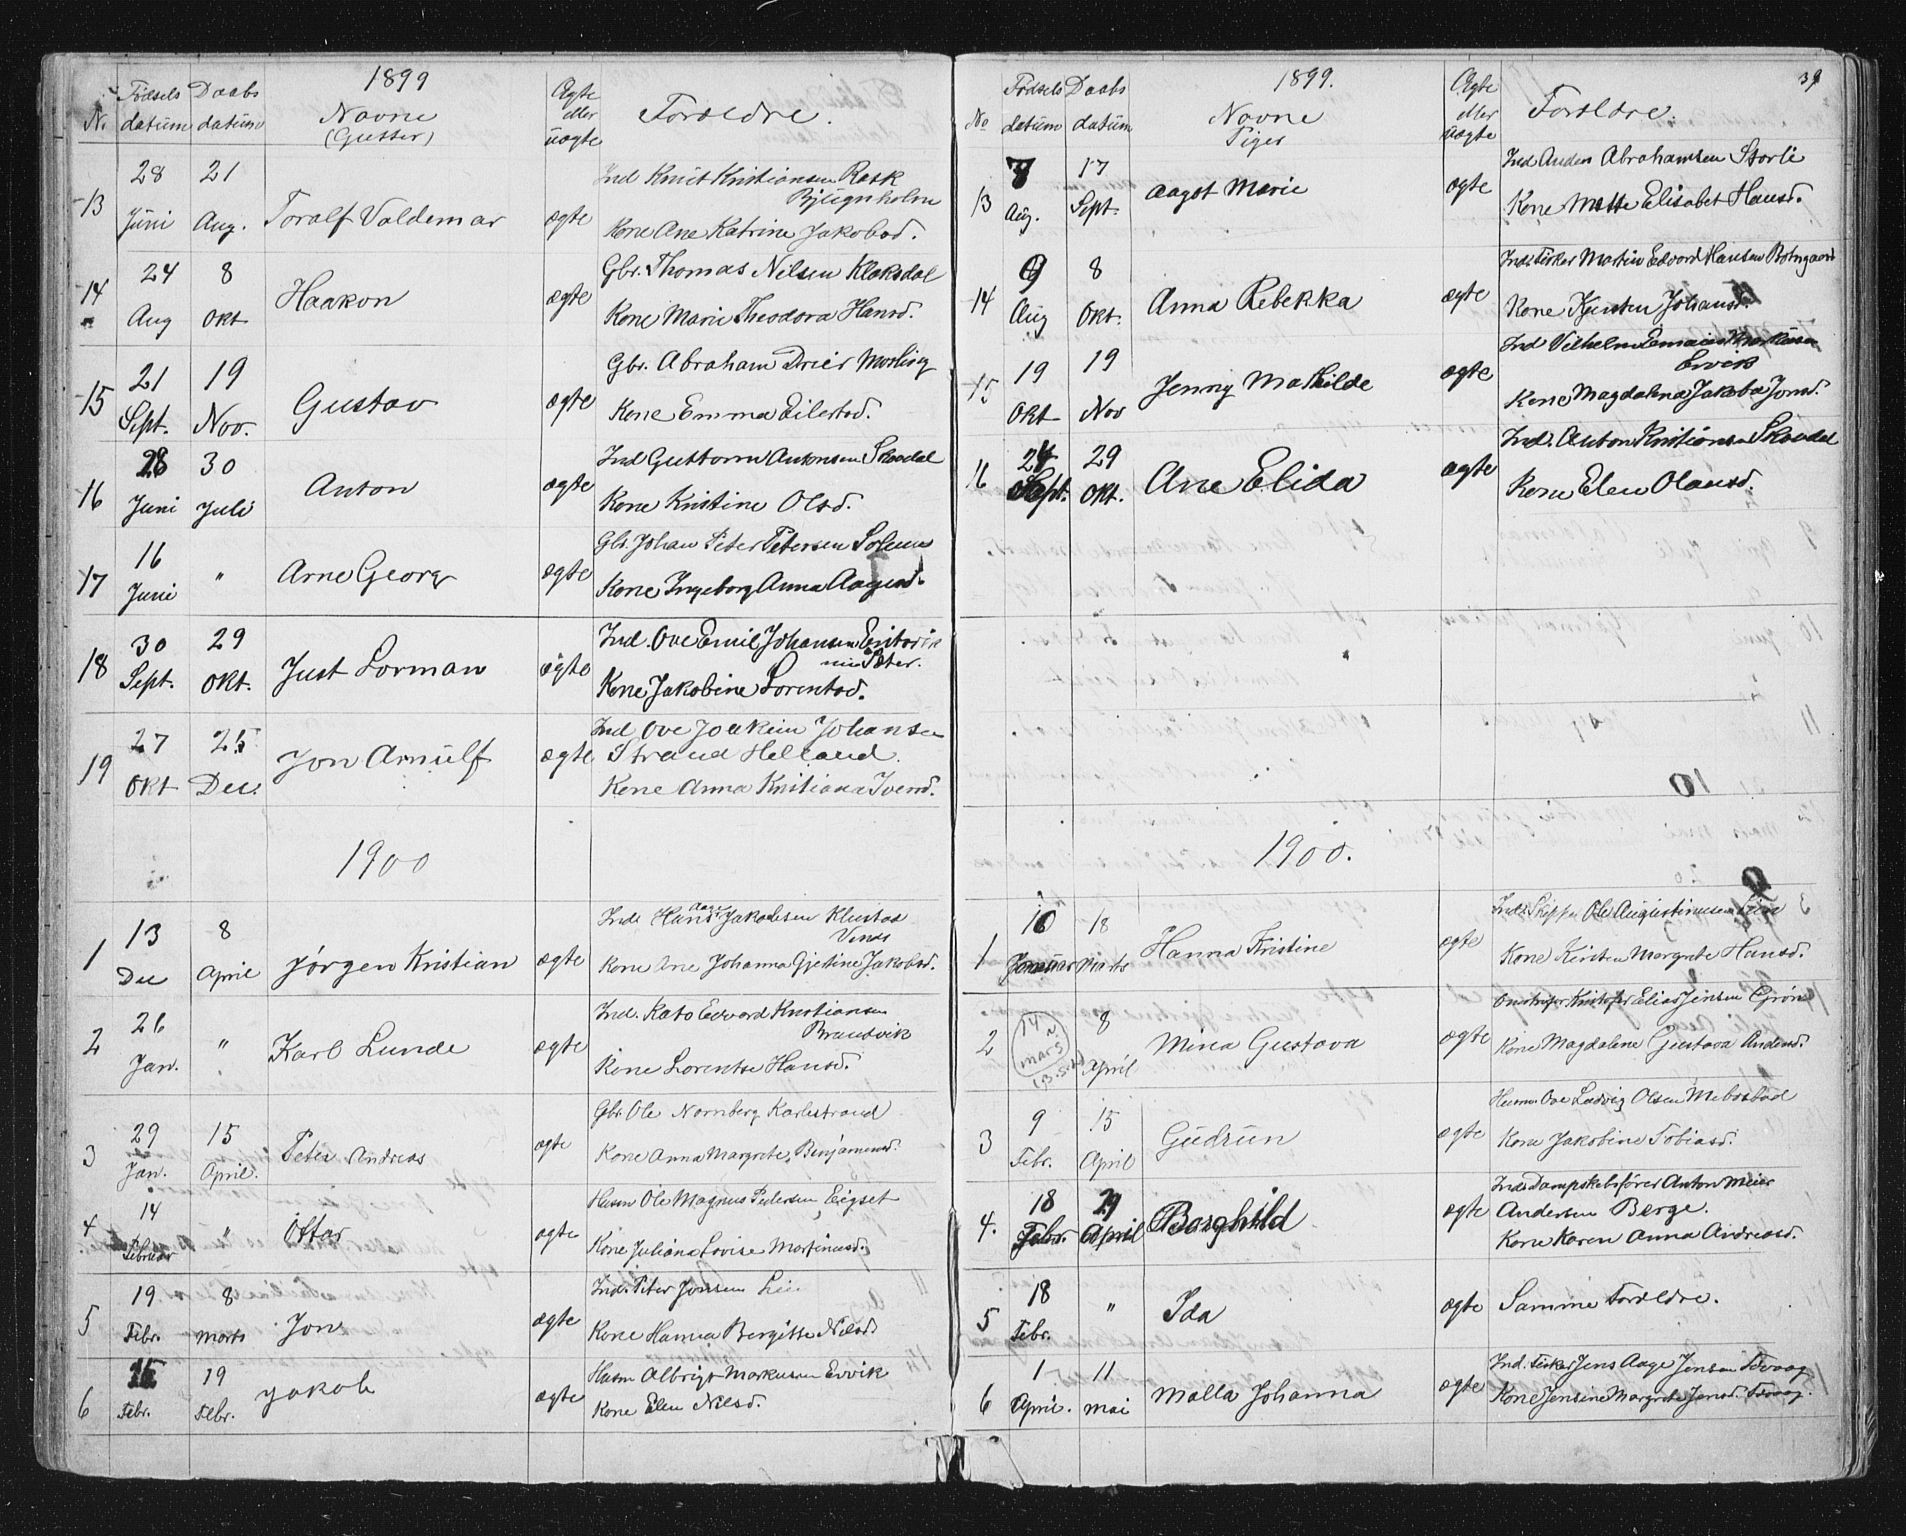 1899
No Fødsels datum Daabs datum Navne (Gutter) Ægte eller uægte Forældre.
13 28 Juni 21 Aug. Toralf Valdemar ægte Ind Knut Kristiansen Rask Bjugnholm
Kone Ane Katrine Jakobsd.
14 24 Aug 8 Okt Haakon ægte Gbr. Thomas Nilsen Klaksdal
Kone Marie Theodora Hansd.
15 21 Sept. 19 Nov. Gustav ægte Gbr. Abraham Drier
Kone Emma Eilertsd.
16 28 Juni 30 Juli Anton ægte Ind Guttorm Antonsen
Kone Kristine Olsd.
17 16 Juni " Arne Georg ægte Gbr. Johan Peter Petersen Solem
Kone Ingeborg Anna
18 30 Sept. 29 Okt. Just Lorman ægte Ind. Ove Emil Johansen
Kone Jakobine Lorentsd.
19 27 Okt 25 Dec. Jon Arnulf ægte Ind Ove Joakim Johansen
Strand Helland.
Kone Anna Kristiana
1900
1 13 Dec 8 April Jørgen Kristian ægte Ind Hans Aage Jakobsen
Kone Ane Johanna Gjertine Jakobsd.
2 26 Jan. " Karl Lunde ægte Ind. Kato Edvard Kristiansen
Brandvik
Kone Lorentse Hansd.
3 29 Jan. 15 April. Peter Andreas ægte Gbr Ole Nornberg Karlstrand
Kone Anna Margrete Benjaminsd.
4 14 Februar " Ottar ægte Husm Ole Magnus Pedersen Eigset
Kone Juliana Lovise Martinusd.
5 19 Febr. 8 Marts Jon ægte Ind. Peter Jonsen Lie
Kone Hanna Bergitte Nilsd.
6 15 Febr. 19 Febr. Jakob ægte Husm Albrigt Markusen Ervik
Kone Elen Nilsd.
39
1899.
No Fødsels datum Daabs datum Navne Piger Ægte eller uægte Forældre.
13 7 Aug. 17 Sept. Aagot Marie ægte Ind Anders Abrahamsen Storli
Kone Mette Elisabet Hansd.
14 9 Aug 8 Okt. Anna Rebekka ægte Ind. Fisker Martin Edvard Hansen Botngaard
Kone Kjersten Johansd.
15 19 Okt 19 Nov Jenny Mathilde ægte Ind Vilhelm Markusen
Ervik
Kone Magdalena Jakoba Jonsd.
16 24 Sept. 29 Okt. Ane Elida ægte Ind. Anton Kristiansen
Kone Elen Olausd.
10
1900.
1 10 Januar 18 Marts Hanna Kristine ægte Ind. Skipper Ole Augustinusen Lien
Kone Kirsten Margrete Hansd.
2 14 mars 8 April Mina Gustava ægte Kristofer Elias Jensen Grøn
Kone Magdalene Gustava Andersd.
3 9 Febr. 15 April Gudrun ægte Husm Ove Ludvig Olsen Mebostad
Kone Jakobine Tobiasd.
4. 18 Febr. 29 April Borghild ægte Ind Dampskibsfører Anton Meier
Andersen Berge.
Kone Karen Anna Andreasd.
5 18 Febr. " Ida ægte Samme Forældre.
6 1 April. 11 mai Malla Johanna ægte Ind. Fisker Jens Aage Jensen
Kone Jensine Margrete Jensd.